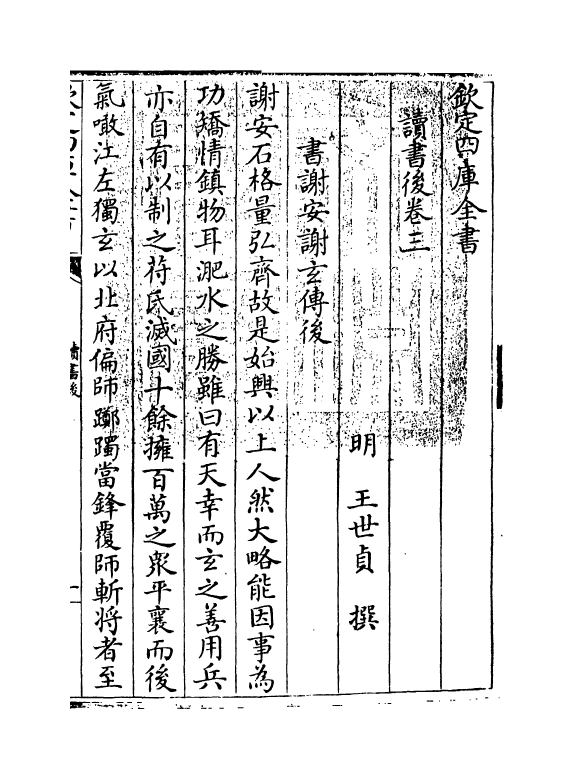 欽定四庫全書
讀書後卷三
明 王世貞 撰
書謝安謝玄傳後
謝安石格量弘齊故是始興以上人然大略能因事為
功矯情鎮物耳淝水之勝雖曰有天幸而玄之善用兵
亦自有以制之苻氐滅國十餘擁百萬之眾平襄而後
氣噉江左獨玄以北府偏師躑躅當鋒覆師斬将者至
讀書後
一